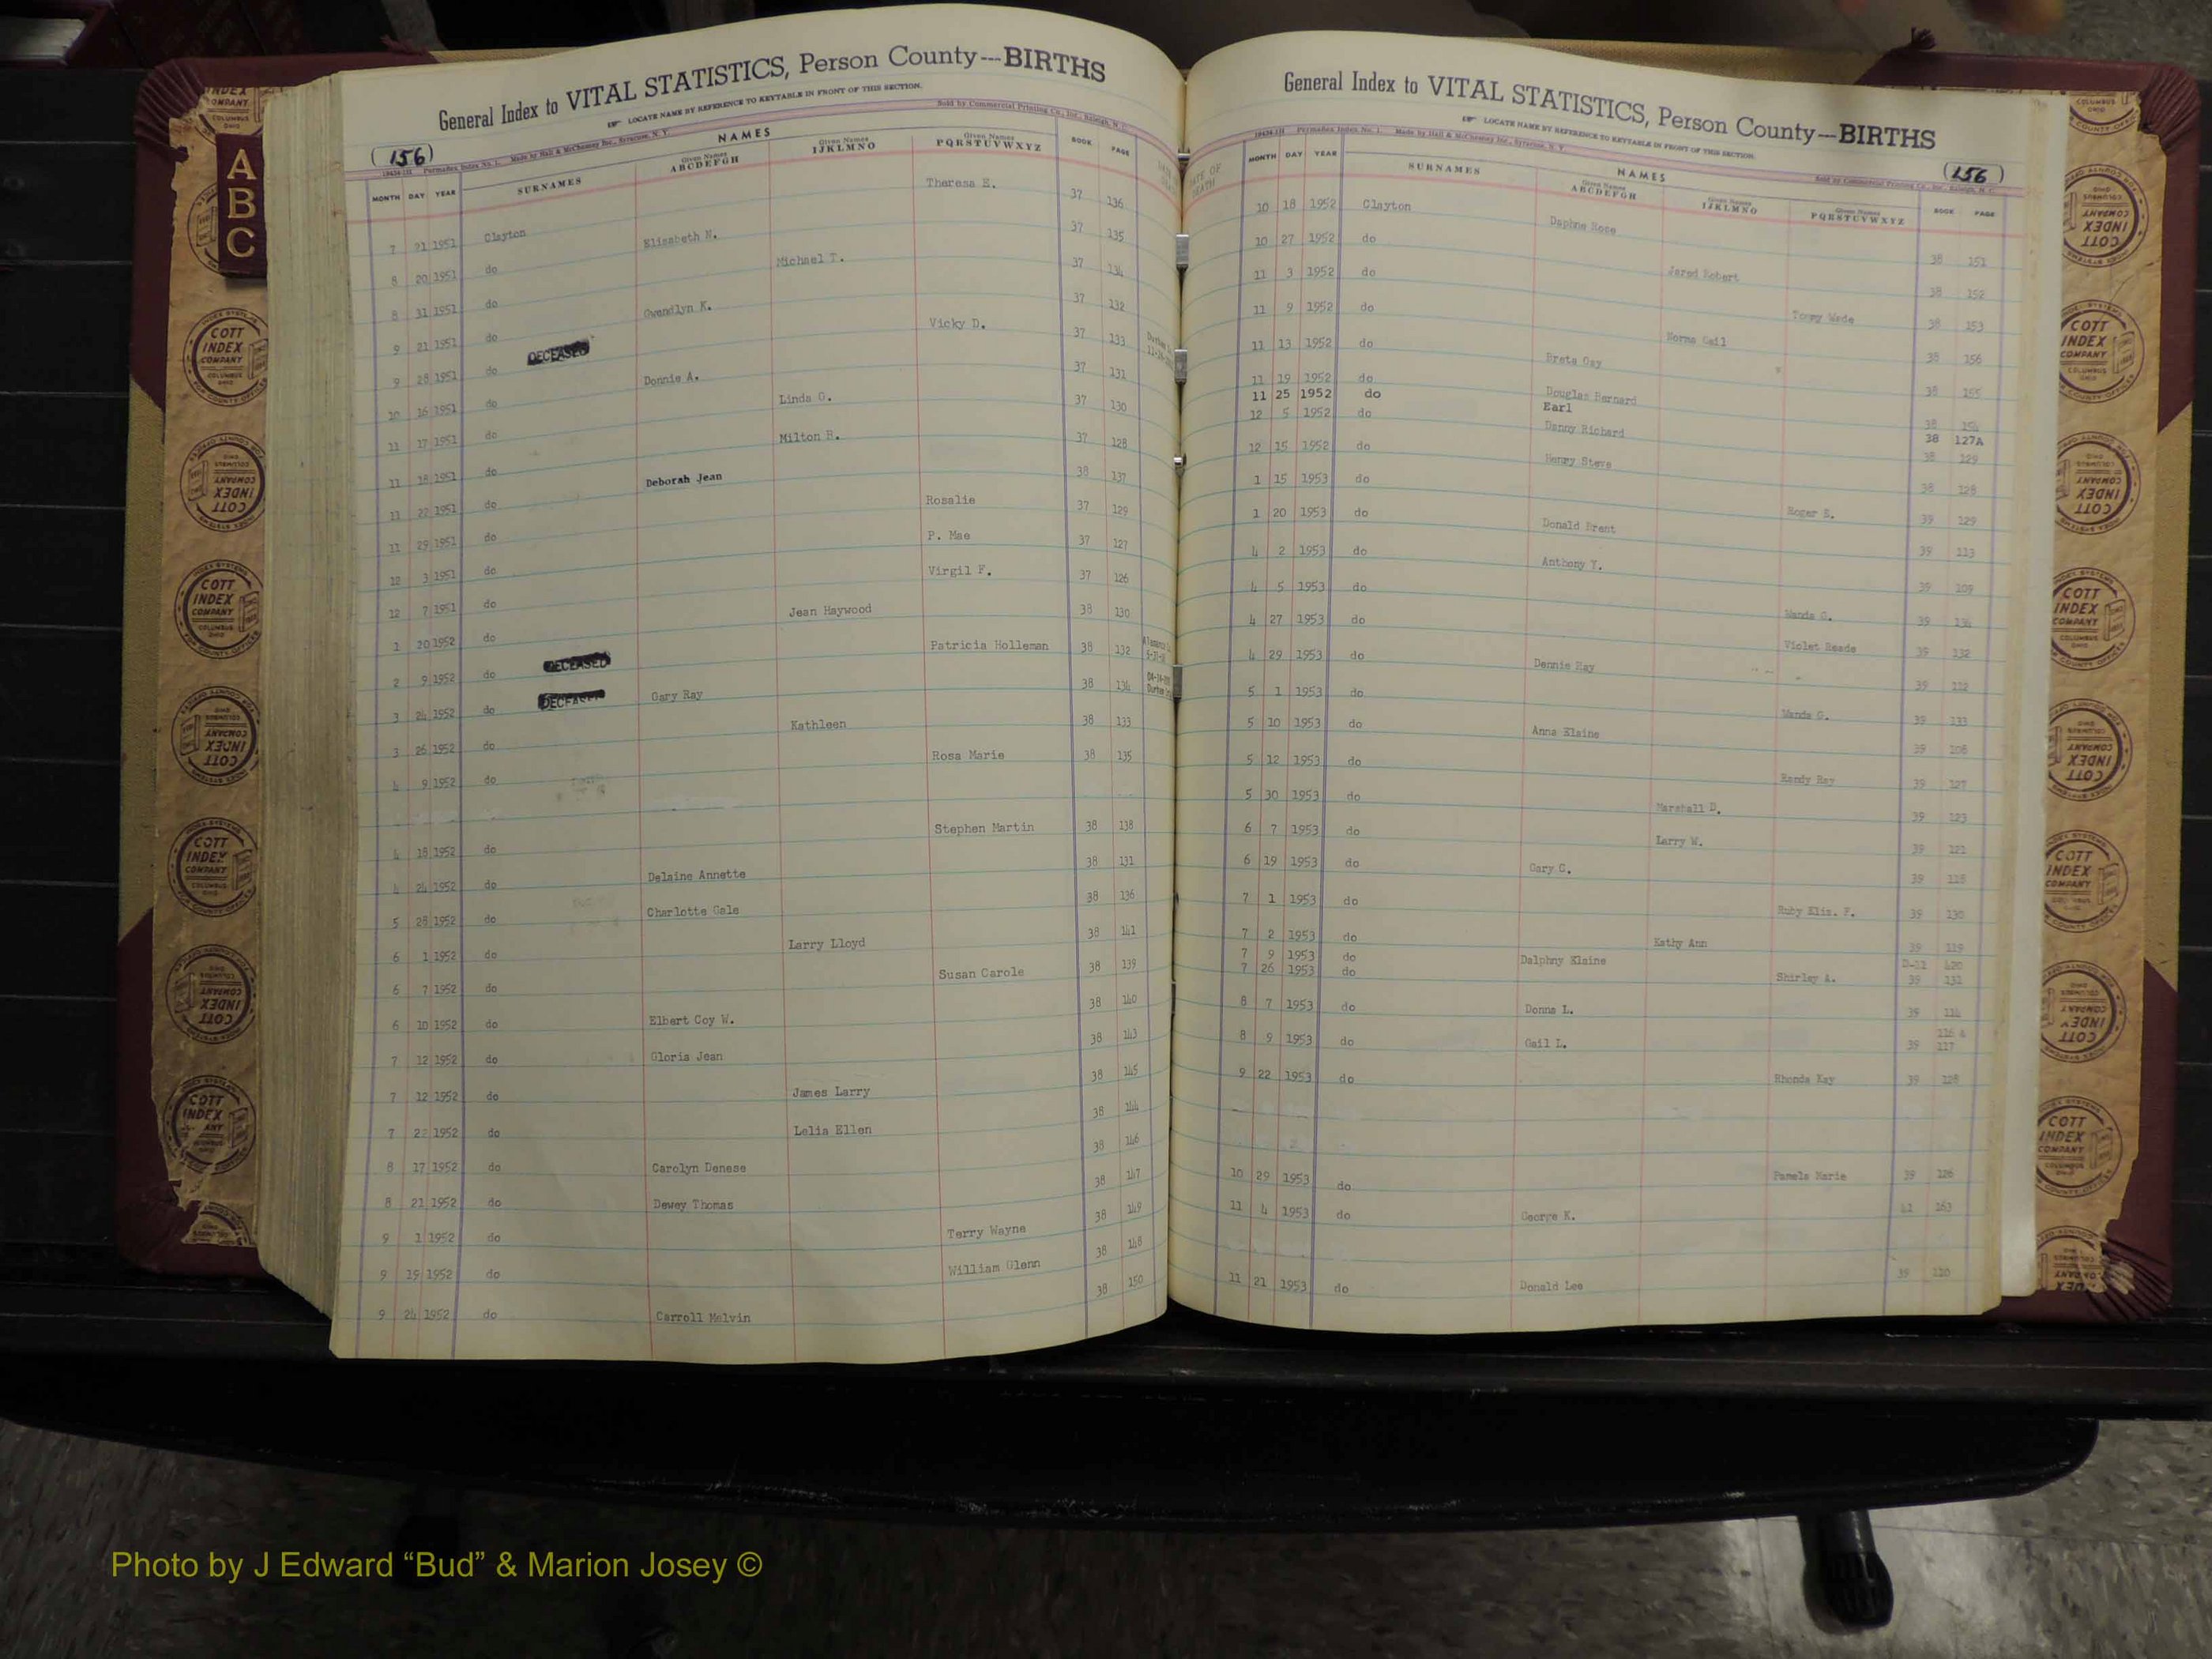 General Index to VITAL STATISTICS, Person County---BIRTHS
LOCATE NAME BY REFERENCE TO KEYTABLE IN FRONT OF THIS SECTION.
Sold by Commercial Printing Co., Inc., Raleigh, N. C.
(156)
Permadex Index No. 1. Made by Hall & McChesney Inc., Syracuse, N. Y.
NAMES
MONTH DAY YEAR SURNAMES Given Names ABCDEFGH Given Names IJKLMNO Given Names PQRSTUVWXYZ BOOK PAGE
7 21 1951 Clayton Theresa E. 37 136
8 20 1951 do Elizabeth N. 37 135
8 31 1951 do Michael T. 37 134
9 21 1951 do Gwendlyn K. 37 132
9 28 1951 do DECEASED Vicky D. 37 133
10 16 1951 do Donnie A. 37 131
11 17 1951 do Linda G. 37 130
11 18 1951 do Milton B. 37 128
11 22 1951 do Deborah Jean 38 137
11 29 1951 do Rosalie 37 129
12 3 1951 do P. Mae 37 127
12 7 1951 do Virgil F. 37 126
1 20 1952 do Jean Haywood 38 130
2 9 1952 do DECEASED Patricia Holleman 38 132
3 24 1952 do DECEASED Gary Ray 38 134
3 26 1952 do Kathleen 38 133
4 9 1952 do Rosa Marie 38 135
4 18 1952 do Stephen Martin 38 138
4 24 1952 do Delaine Annette 38 131
5 28 1952 do Charlotte Gale 38 136
6 1 1952 do Larry Lloyd 38 141
6 7 1952 do Susan Carole 38 139
6 10 1952 do Elbert Coy W. 38 140
7 12 1952 do Gloria Jean 38 143
7 12 1952 do James Larry 38 145
7 22 1952 do Lelia Ellen 38 144
8 17 1952 do Carolyn Denese 38 146
8 21 1952 do Dewey Thomas 38 147
9 1 1952 do Terry Wayne 38 149
9 19 1952 do William Glenn 38 148
9 24 1952 do Carroll Melvin 38 150
General Index to VITAL STATISTICS, Person County---BIRTHS
LOCATE NAME BY REFERENCE TO KEYTABLE IN FRONT OF THIS SECTION.
Permadex Index No. 1. Made by Hall & McChesney Inc., Syracuse, N. Y.
(156)
NAMES
MONTH DAY YEAR SURNAMES Given Names ABCDEFGH Given Names IJKLMNO Given Names PQRSTUVWXYZ BOOK PAGE
10 18 1952 Clayton Daphne Rose 38 151
10 27 1952 do Jared Robert 38 152
11 3 1952 do Tommy Wade 38 153
11 9 1952 do Norma Gail 38 156
11 13 1952 do Breta Gay 38 155
11 19 1952 do Douglas Bernard 38 154
11 25 1952 do Earl 38 127A
12 5 1952 do Danny Richard 38 129
12 15 1952 do Henry Steve 38 128
1 15 1953 do Roger E. 39 129
1 20 1953 do Donald Brent 39 113
4 2 1953 do Anthony Y. 39 109
4 5 1953 do Wanda G. 39 134
4 27 1953 do Violet Reade 39 132
4 29 1953 do Dennie Ray 39 112
5 1 1953 do Wanda G. 39 133
5 10 1953 do Anna Elaine 39 108
5 12 1953 do Randy Ray 39 127
5 30 1953 do Marshall D. 39 123
6 7 1953 do Larry W. 39 121
6 19 1953 do Gary C. 39 118
7 1 1953 do Ruby Eliz. F. 39 130
7 2 1953 do Kathy Ann 39 119
7 9 1953 do Dalphny Elaine 420
7 26 1953 do Shirley A. 39 131
8 7 1953 do Donna L. 39 114
8 9 1953 do Gail L. 39 116 & 117
9 22 1953 do Rhonda Kay 39 128
10 29 1953 do Pamela Marie 39 126
11 4 1953 do George K. 41 163
11 21 1953 do Donald Lee 39 120
A
B
C
COTT INDEX COMPANY COLUMBUS OHIO
Photo by J Edward “Bud” & Marion Josey ©